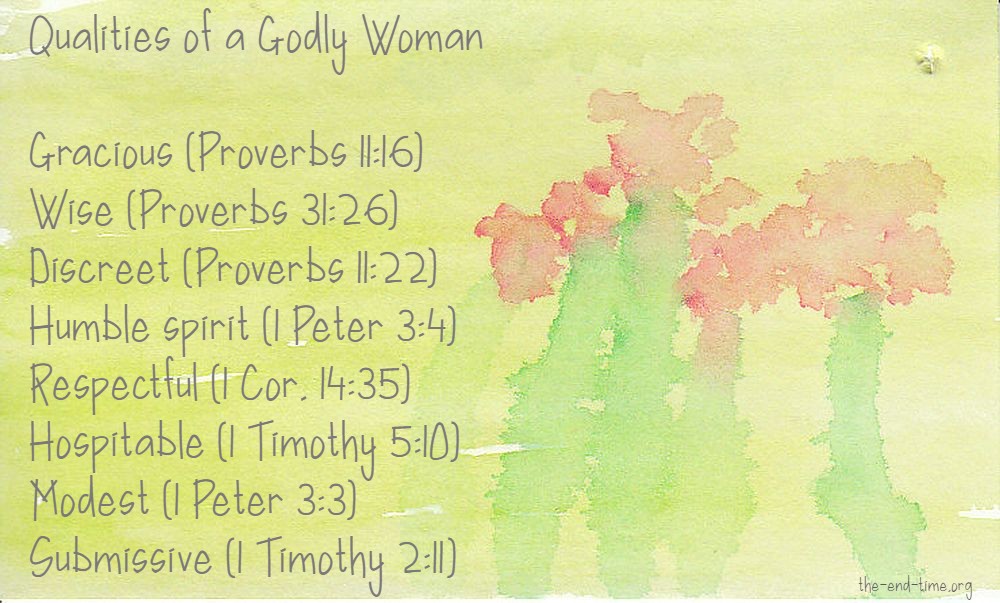 Qualities of a Godly Woman
Gracious (Proverbs 11:16)
Wise (Proverbs 31:26)
Discreet (Proverbs 11:22)
Humble spirit (1 Peter 3:4)
Respectful (1 Cor. 14:35)
Hospitable (1 Timothy 5:10)
Modest (1 Peter 3:3)
Submissive (1 Timothy 2:11)
the-end-time.org